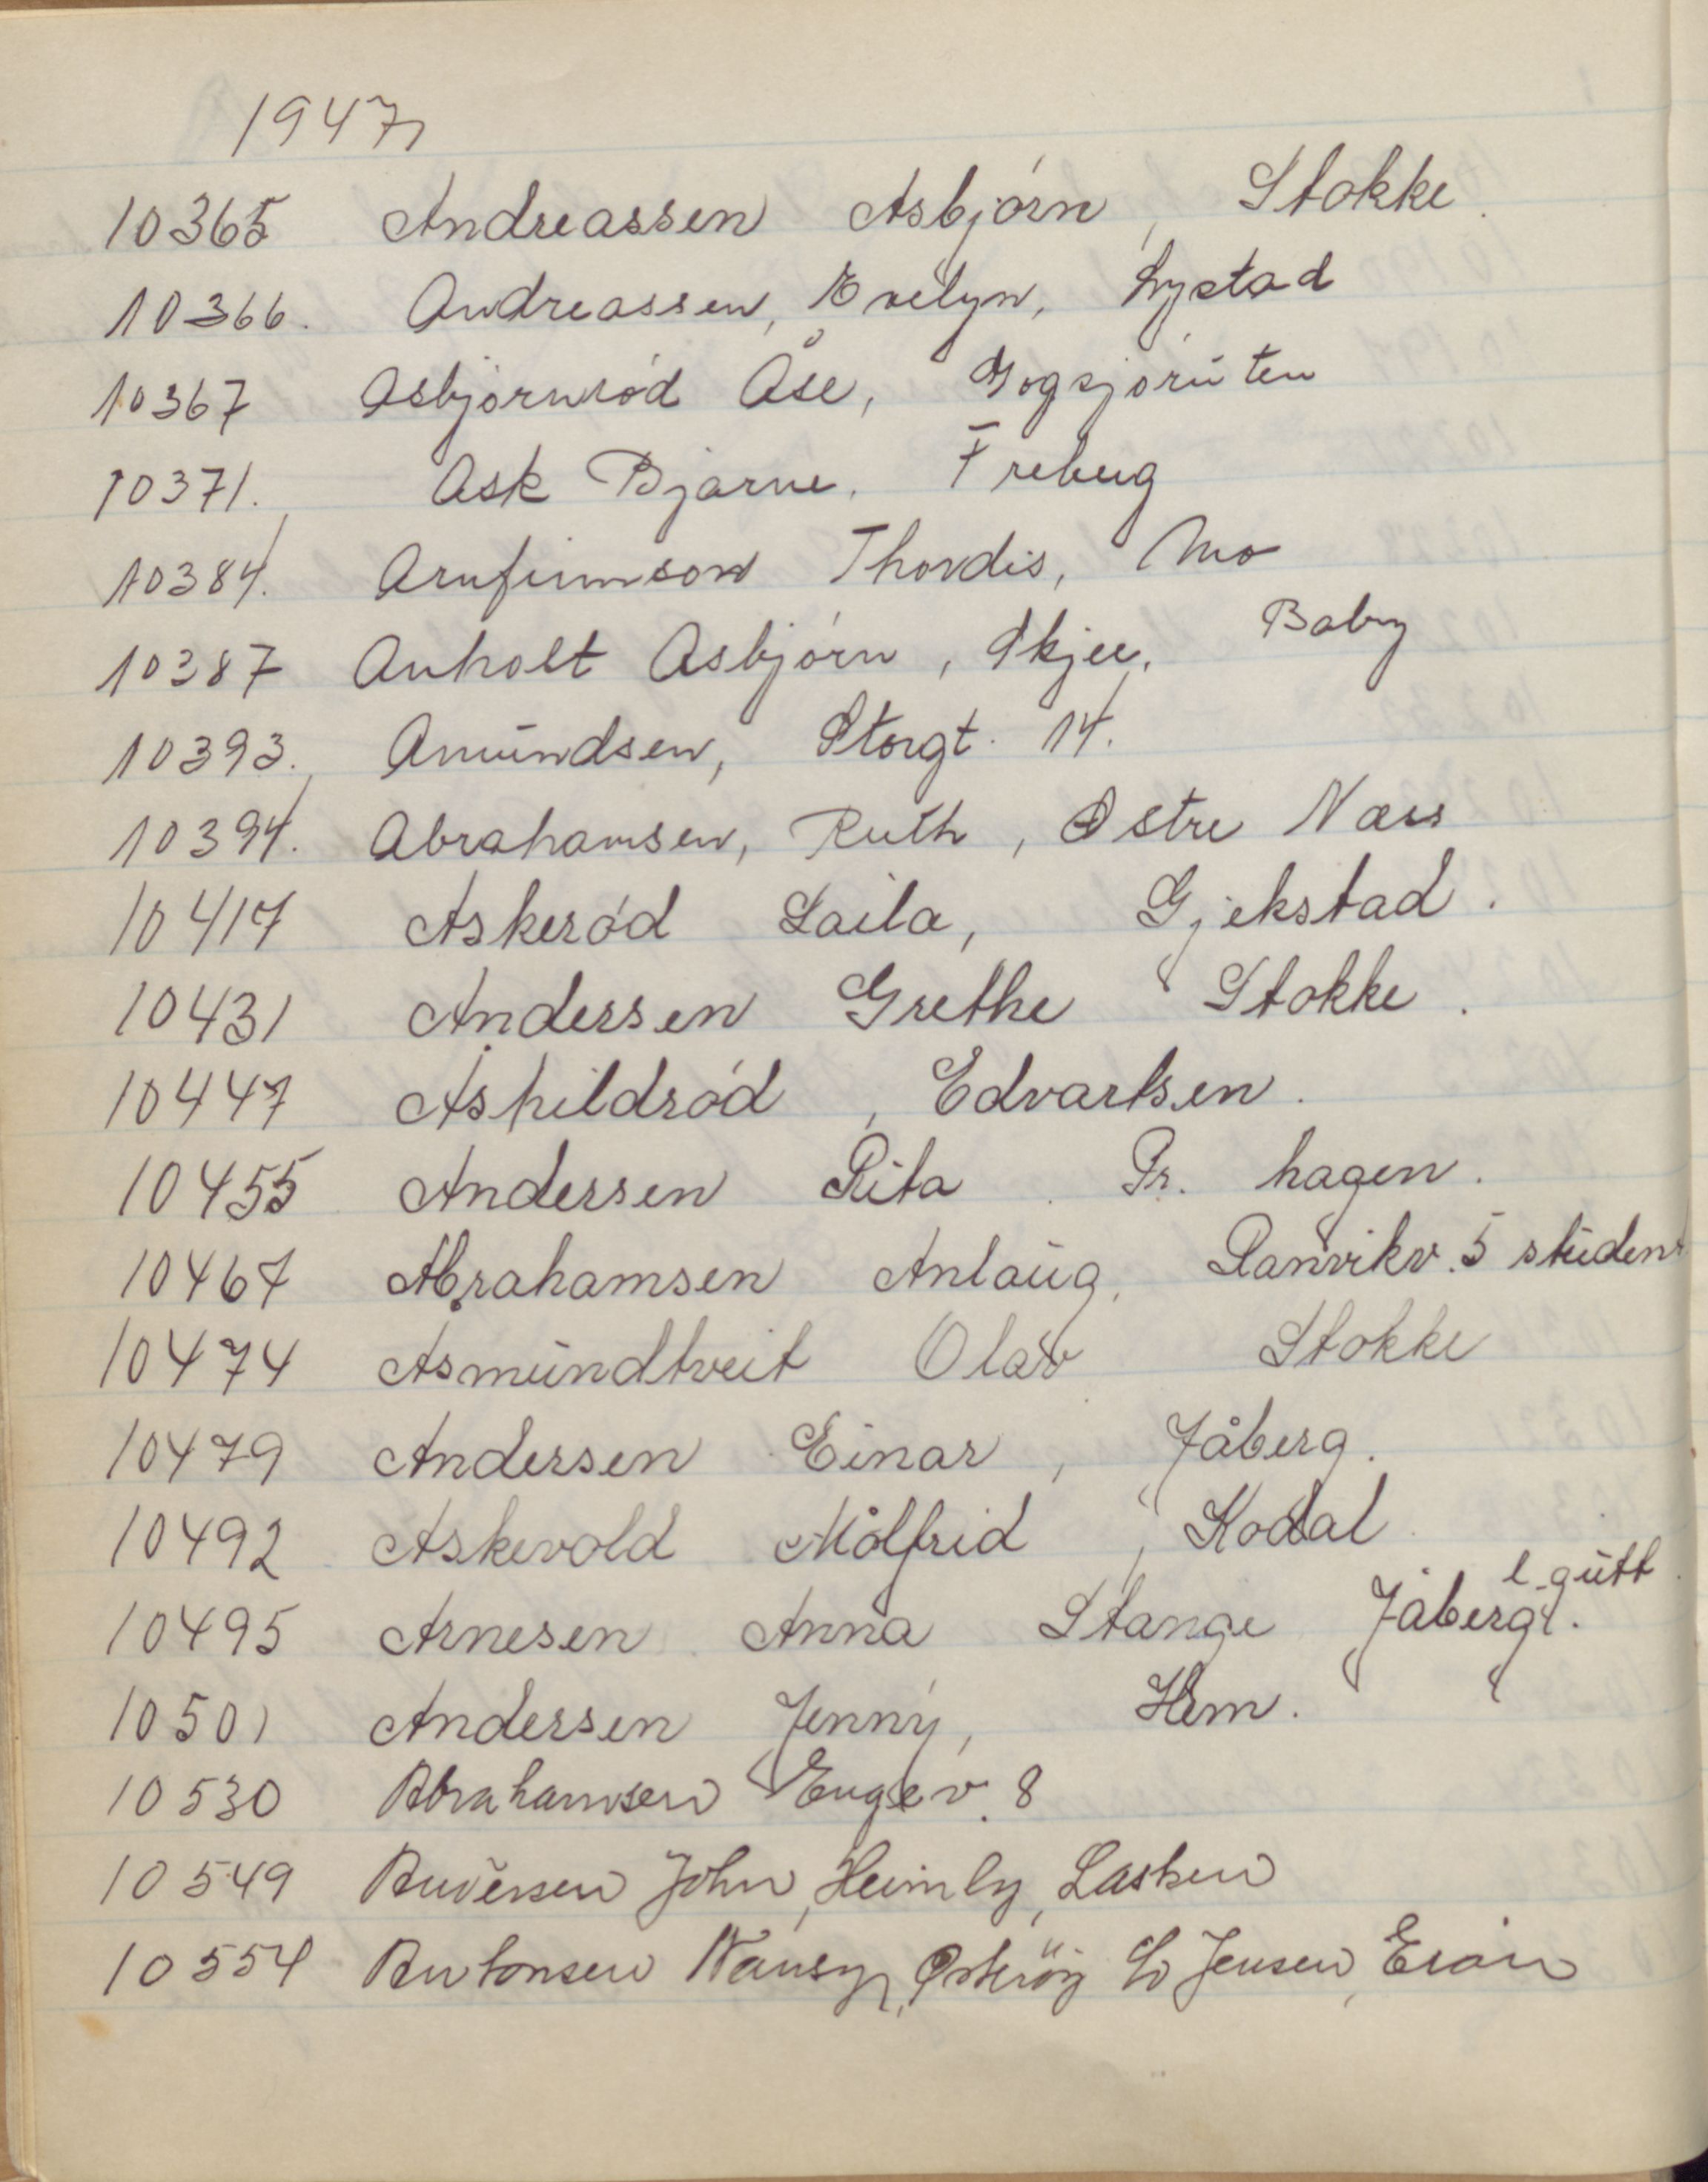 1947
10365 Andreassen Asbjørn, Stokke.
10366. Andreassen, Evelyn, Lystad
10367 Asbjørnrød Åse, Gogsjøruten
10371. Ask Bjarne. Freberg
10384. Arnfinnson Thordis, Mo
10387 Anholt Asbjørn, Skjee, Baby
10393. Amundsen, Storgt. 14.
10394. Abrahamsen, Ruth, Østre Næss
10417 Askerød Laila, Gjekstad.
10431 Andersen Grethe Stokke.
10447 Åshildrød, Edvartsen.
10455 Andersen Rita. Pr. hagen.
10467 Abrahamsen Anlaug, Ranvikv. 5 student
10474 Asmundtveit Olav Stokke
10479 Andersen Einar, Jåberg.
10492 Askevold Målfrid, Kodal
10495 Arnesen Anna Stange Jåberg. l. gutt.
10501 Andersen Jenny, Hem.
10530 Abrahamsen Engev. 8
10549 Andersen John, Heimly, Lasken
10554 Antonsen Nansy, Østerøy Jensen,